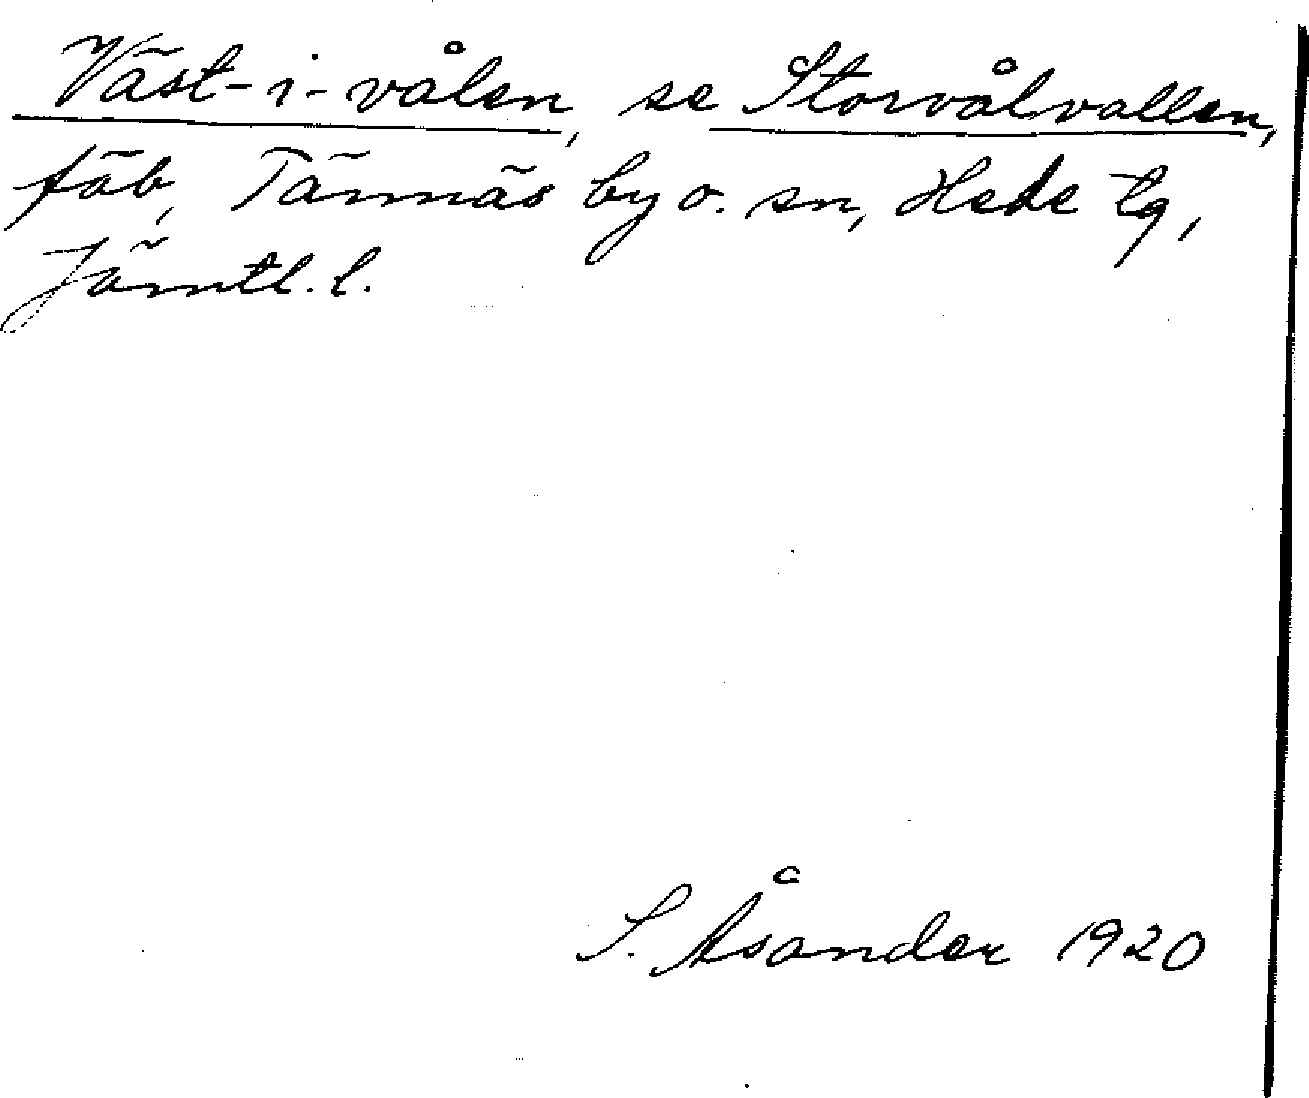 Väst-i-vålen, se Storvålvallen,
fäb, Tännäs by o. sn, Hede tg,
Jämtl. l.
S. Åsander 1920